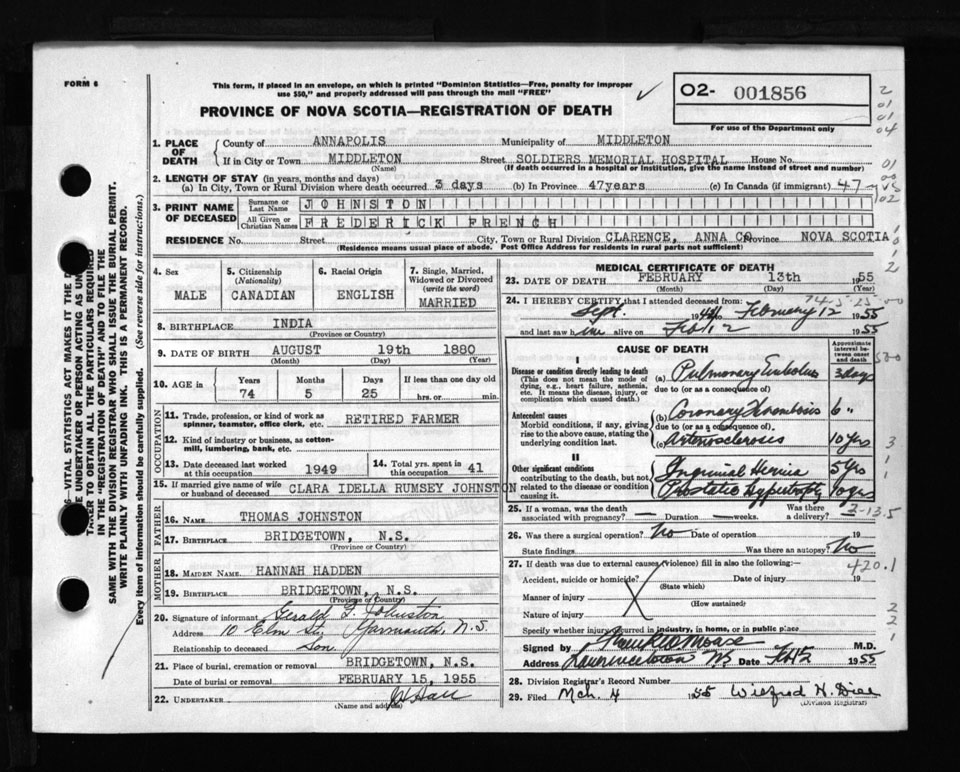 FORM 6
This form, if placed in an envelope, on which is printed "Dominion Statistics—Free, penalty for improper
use $50," and properly addressed will pass through the mail "FREE"
✓
O2- 001856
For use of the Department only
PROVINCE OF NOVA SCOTIA—REGISTRATION OF DEATH
1. PLACE OF DEATH
County of ANNAPOLIS Municipality of MIDDLETON
If in City or Town MIDDLETON Street SOLDIERS MEMORIAL HOSPITAL House No.
(Name) (If death occurred in a hospital or institution, give the name instead of street and number)
2. LENGTH OF STAY (in years, months and days)
(a) In City, Town or Rural Division where death occurred 3 days (b) In Province 47years (c) In Canada (if immigrant) 47
3. PRINT NAME OF DECEASED
Surname or Last Name JOHNSTON
All Given or Christian Names FREDERICK FRENCH
RESIDENCE No. Street City, Town or Rural Division CLARENCE, ANNA CO Province NOVA SCOTIA
(Residence means usual place of abode. Post Office Address for residents in rural parts not sufficient)
4. Sex
MALE
5. Citizenship (Nationality)
CANADIAN
6. Racial Origin
ENGLISH
7. Single, Married, Widowed or Divorced (write the word)
MARRIED
8. BIRTHPLACE INDIA
(Province or Country)
9. DATE OF BIRTH AUGUST 19th 1880
(Month) (Day) (Year)
10. AGE in Years Months Days If less than one day
74 5 25 hrs. or min.
OCCUPATION
11. Trade, profession, or kind of work as spinner, teamster, office clerk, etc. RETIRED FARMER
12. Kind of industry or business, as cotton-mill, lumbering, bank, etc.
13. Date deceased last worked at this occupation 1949
14. Total yrs. spent in this occupation 41
15. If married give name of wife or husband of deceased CLARA IDELLA RUMSEY JOHNSTON
FATHER
16. NAME THOMAS JOHNSTON
17. BIRTHPLACE BRIDGETOWN, N.S.
(Province or Country)
MOTHER
18. MAIDEN NAME HANNAH HADDEN
19. BIRTHPLACE BRIDGETOWN, N.S.
(Province or Country)
20. Signature of informant Gerald F. Johnston
Address 10 Elm St., Yarmouth, N.S.
Relationship to deceased Son.
21. Place of burial, cremation or removal BRIDGETOWN, N.S.
Date of burial or removal FEBRUARY 15, 1955
22. UNDERTAKER Hall
(Name and address)
MEDICAL CERTIFICATE OF DEATH
23. DATE OF DEATH FEBRUARY 13th 1955
(Month) (Day)
74-5-25
24. I HEREBY CERTIFY, that I attended deceased from:
Sept. 19 to February 12 1955
and last saw him alive on Feb 12 1955
CAUSE OF DEATH
Approximate interval between onset and death
I
Disease or condition directly leading to death
(This does not mean the mode of dying, e.g., heart failure, asthenia, etc. It means the disease, injury, or complication which caused death.)
(a) Pulmonary Embolus 3 days
due to (or as a consequence of)
Antecedent causes
Morbid conditions, if any, giving rise to the above cause, stating the underlying condition last.
(b) Coronary Thrombosis 6 "
due to (or as a consequence of).
(c) Arteriosclerosis 10 yrs
II
Other significant conditions
contributing to the death, but not related to the disease or condition causing it.
Inguinal Hernia 5 yrs
Prostatic Hypertrophy 10 yrs
25. If a woman, was the death associated with pregnancy? — Duration — weeks. Was there a delivery?
2-13.5
26. Was there a surgical operation? No Date of operation 19
State findings Was there an autopsy? No
27. If death was due to external causes (violence) fill in also the following:—
420.1
Accident, suicide or homicide? Date of injury 19
(State which)
Manner of injury
(How sustained)
Nature of injury
Specify whether injury occurred in industry, in home, or in public place
Signed by M.D.
Address Lawrencetown NS Date 1955
28. Division Registrar's Record Number
29. Filed Mch. 4 1955 Wilfred H.
(Division Registrar)
SAME WITH THE DIVISION REGISTRAR WHO SHALL ISSUE THE BURIAL PERMIT.
WRITE PLAINLY WITH UNFADING INK. THIS IS A PERMANENT RECORD.
Every item of information should be carefully supplied. (See reverse side for instructions.)